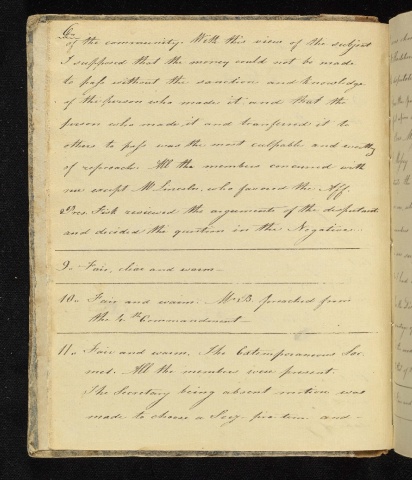 60
of the community. With this view of the subject
I supposed that the money could not be made
to pass without the sanction and knowledge
of the person who made it and that the
person who made it and transfered it to
others to pass was the most culpable and worthy
of reproach. All the members concurred with
me except M. Lincoln, who favored the Aff.
Pres. Fisk reviewed the arguments of the disputants
and decided the question in the Negative
9. Fair, clear and warm
10. Fair and warm. Mr. B. preached from
the th Commandment
11. Fair and warm. The Extemporaneous Soc.
met. All the members were present
The Secretary being absent motion was
made to choose a Secy. pro. tem. and